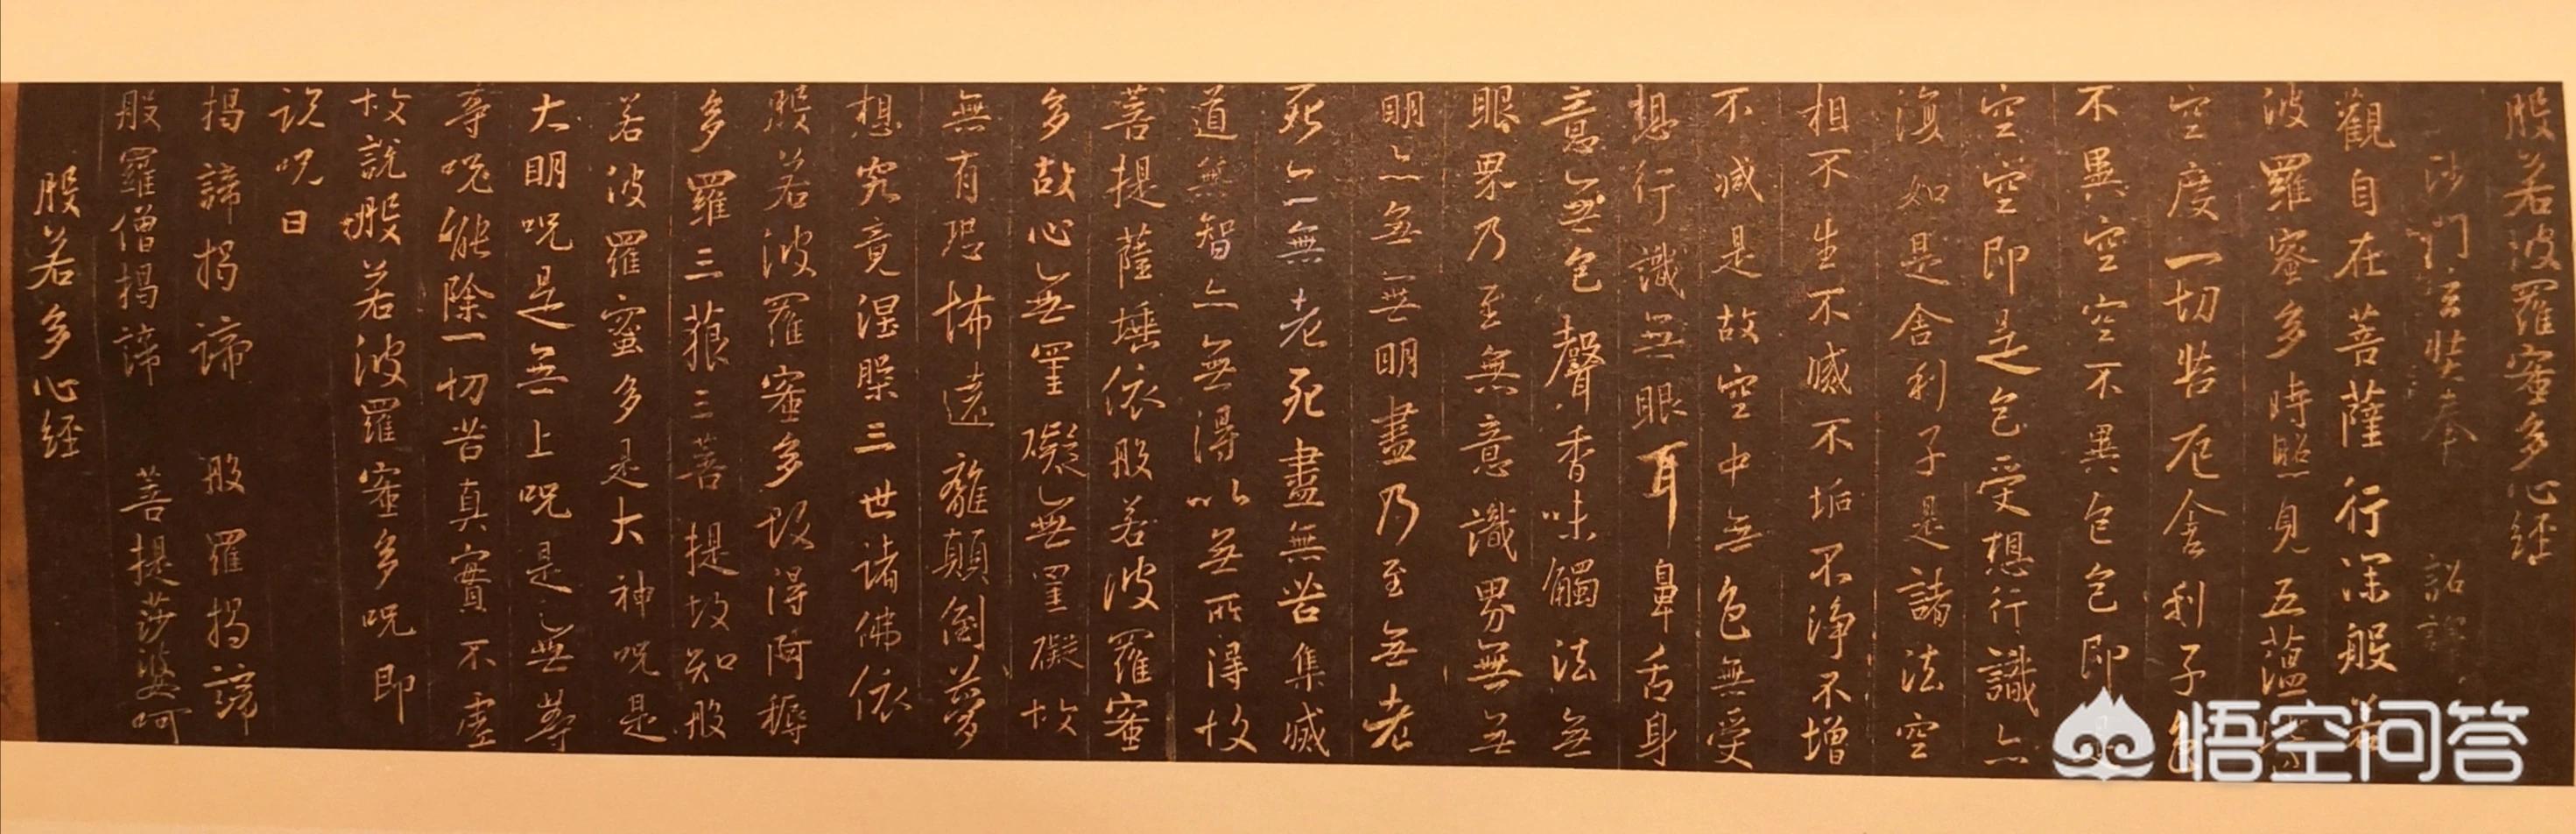 般若波羅蜜多心経
沙門玄奘奉 詔譯
觀自在菩薩行深般若
波羅蜜多時照見五蘊皆
空度一切苦厄舍利子色
不異空空不異色色即是
空空即是色受想行識亦
復如是舍利子是諸法空
相不生不滅不垢不淨不增
不減是故空中無色無受
想行識無眼耳鼻舌身
意無色聲香味觸法無
眼界乃至無意識界無無
明亦無無明盡乃至無老
死亦無老死盡無苦集滅
道無智亦無得以無所得故
菩提薩埵依般若波羅蜜
多故心無罣礙無罣礙故
無有恐怖遠離顛倒夢
想究竟涅槃三世諸佛依
般若波羅蜜多故得阿耨
多羅三藐三菩提故知般
若波羅蜜多是大神呪是
大明呪是無上呪是無等
等呪能除一切苦真實不虛
故說般若波羅蜜多呪即
說呪曰
揭諦揭諦 般羅揭諦
般羅僧揭諦 菩提莎婆呵
般若多心経
悟空问答